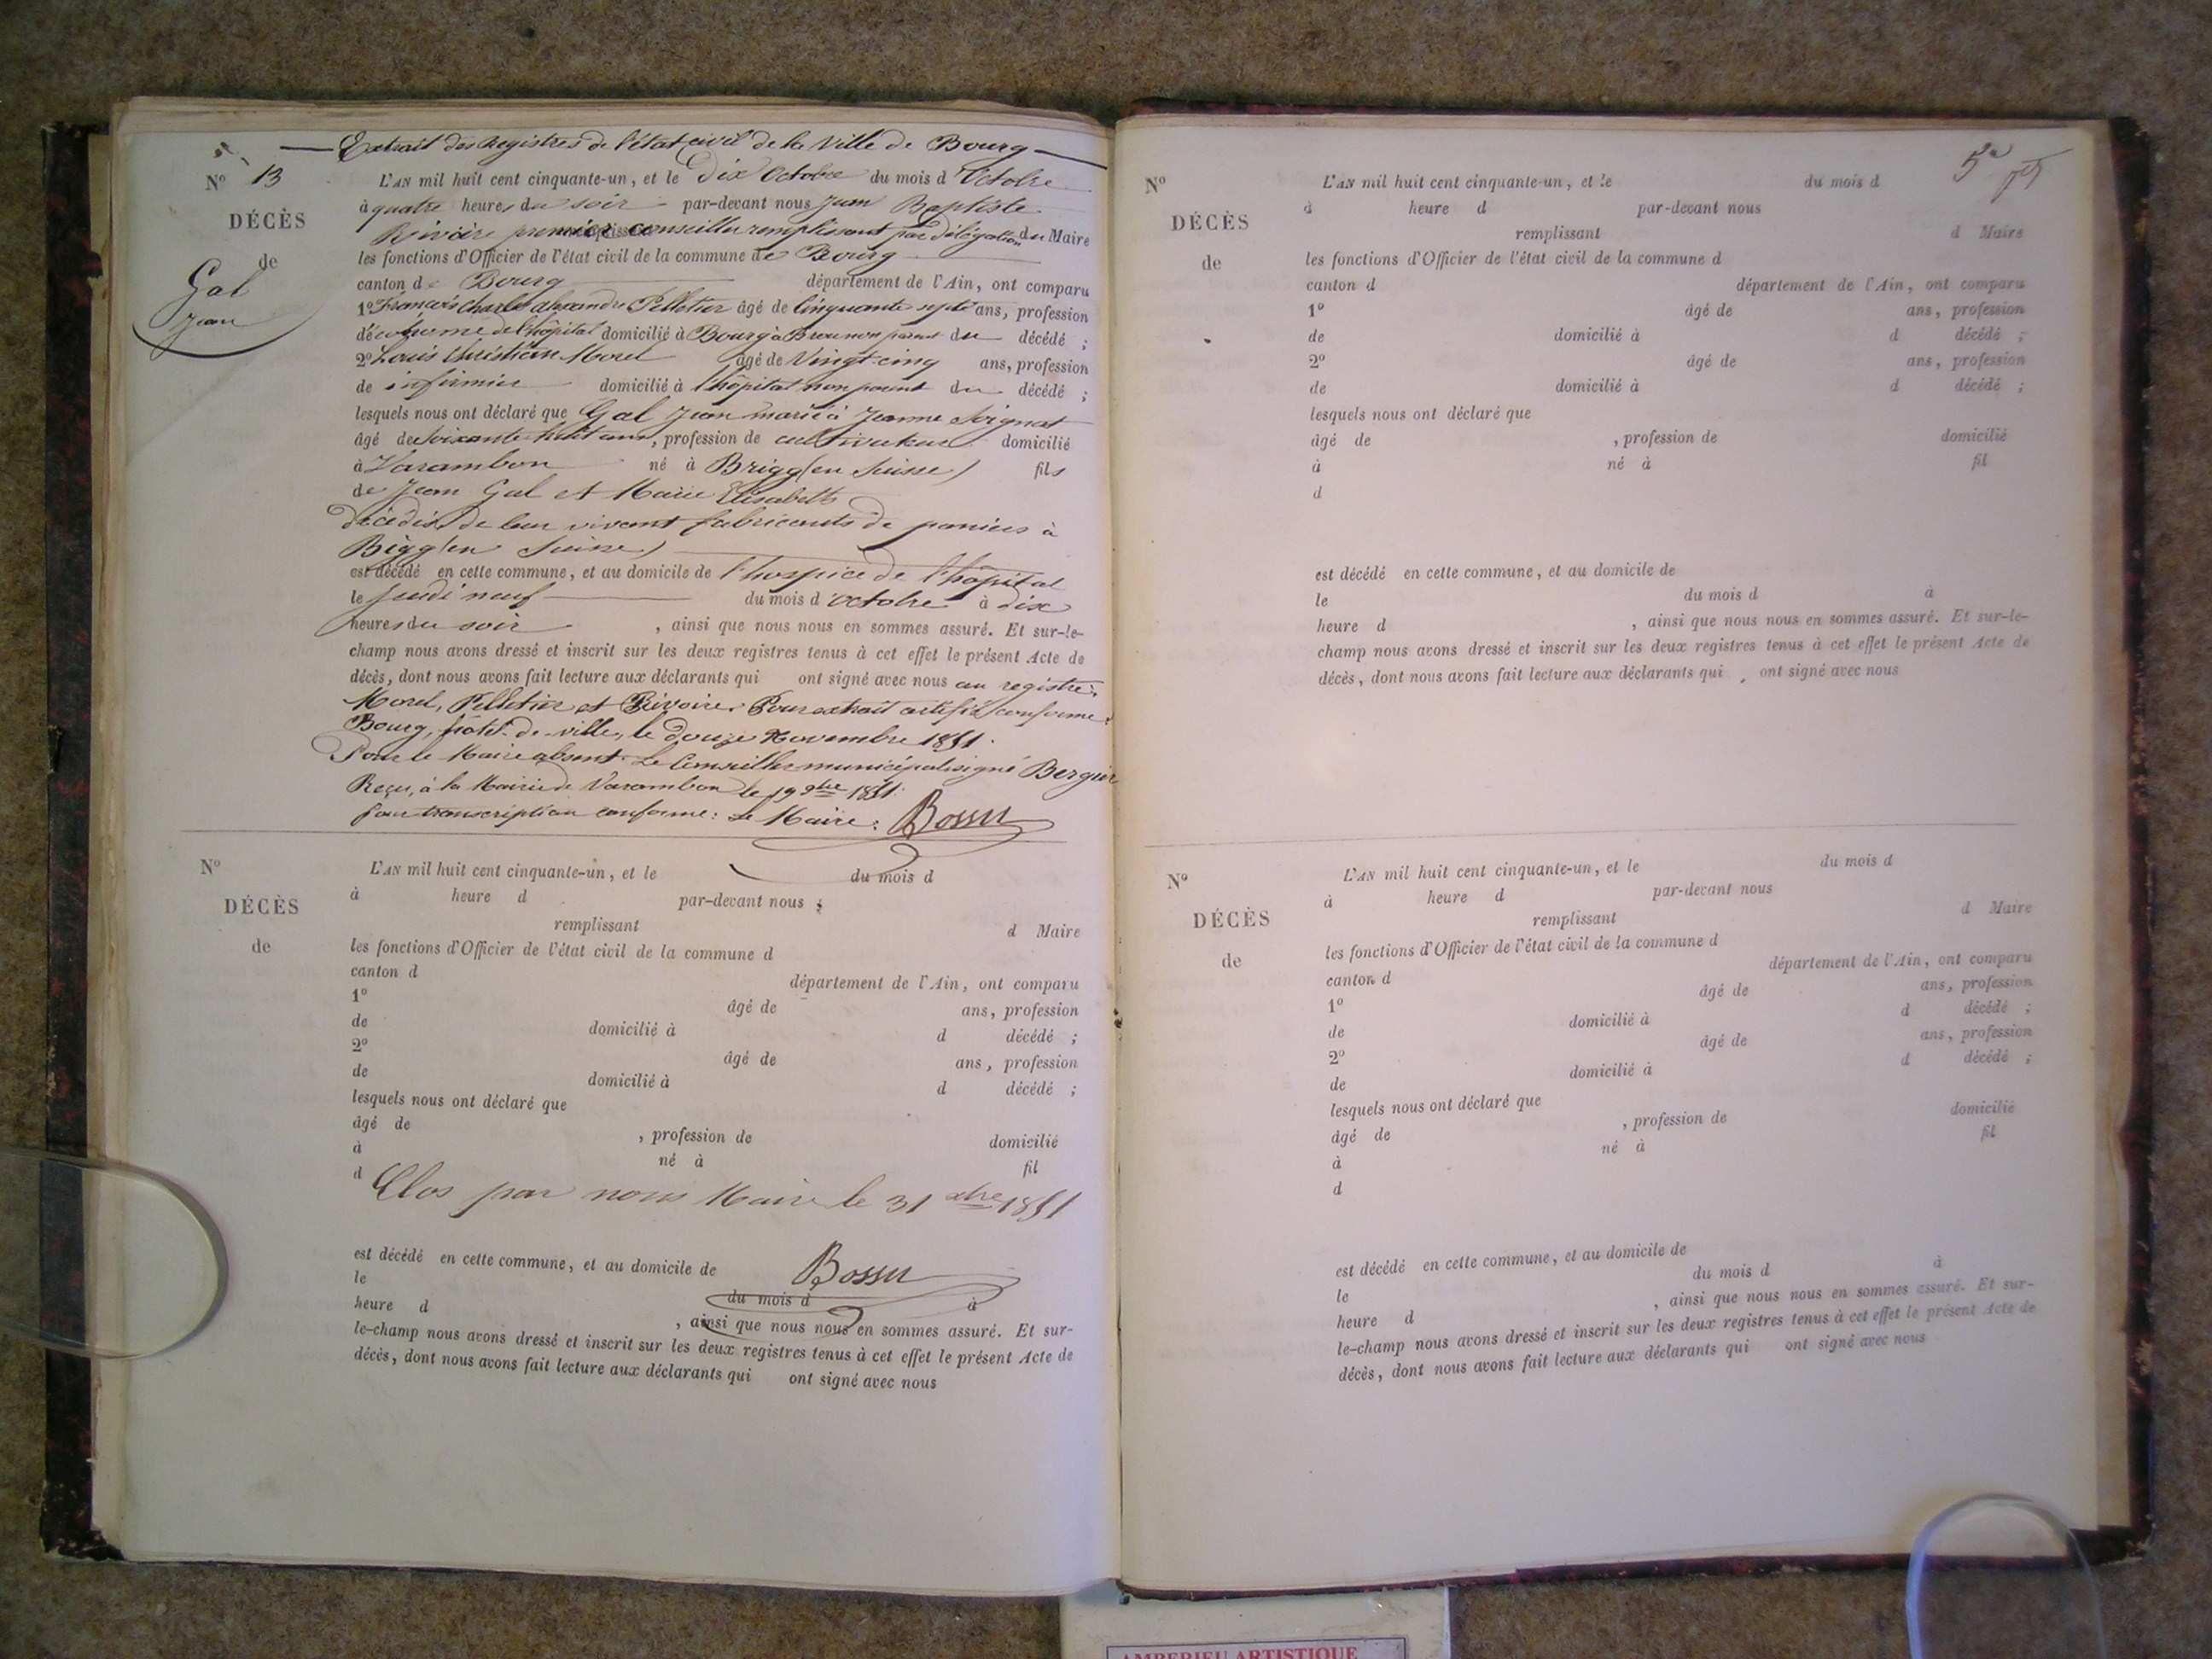 Extrait des Registres de l'état civil de la Ville de Bourg
N° 13
DÉCÈS
de
Gal
Jean
L'AN mil huit cent cinquante-un, et le dix Octobre du mois d'Octobre
à quatre heures du soir par-devant nous Jean Baptiste
Rivoire premier conseiller remplissant par délégation du Maire
les fonctions d'Officier de l'état civil de la commune de Bourg
canton de Bourg département de l'Ain, ont comparu
1° François Charles Alexandre Pelletier âgé de Cinquante sept ans, profession
d'économe de l'hôpital domicilié à Bourg à Brou non parent du décédé ;
2° Louis Christian Morel âgé de Vingt-cinq ans, profession
de infirmier domicilié à l'hôpital non parent du décédé ;
lesquels nous ont déclaré que Gal Jean marié à Jeanne Soignat
âgé de soixante-huit ans, profession de cultivateur domicilié
à Varambon né à Brigg (en Suisse) fils
de Jean Gal et Marie Elisabeth
décédés de leur vivant fabricants de paniers à
Bigg (en Suisse)
est décédé en cette commune, et au domicile de l'hospice de l'hôpital
le Jeudi neuf du mois d'octobre à dix
heures du soir, ainsi que nous nous en sommes assuré. Et sur-le-
champ nous avons dressé et inscrit sur les deux registres tenus à cet effet le présent Acte de
décès, dont nous avons fait lecture aux déclarants qui ont signé avec nous au registre.
Morel, Pelletier et Rivoire. Pour extrait certifié conforme.
Bourg, hôtel de ville, le douze Novembre 1851.
Pour le Maire absent Le Conseiller municipal signé Bergier
Reçu, à la Mairie de Varambon le 19 9bre 1851.
Pour transcription conforme : Le Maire : Bossu
N°
DÉCÈS
de
L'AN mil huit cent cinquante-un, et le du mois d
à heure d par-devant nous
remplissant d Maire
les fonctions d'Officier de l'état civil de la commune d
canton d département de l'Ain, ont comparu
1° âgé de ans, profession
de domicilié à d décédé ;
2° âgé de ans, profession
de domicilié à d décédé ;
lesquels nous ont déclaré que
âgé de , profession de domicilié
à né à fil
d
Clos par nous Maire le 31 xbre 1851
Bossu
est décédé en cette commune, et au domicile de
le du mois d à
heure d , ainsi que nous nous en sommes assuré. Et sur-
le-champ nous avons dressé et inscrit sur les deux registres tenus à cet effet le présent Acte de
décès, dont nous avons fait lecture aux déclarants qui ont signé avec nous
N°
DÉCÈS
de
L'AN mil huit cent cinquante-un, et le du mois d
à heure d par-devant nous
remplissant d Maire
les fonctions d'Officier de l'état civil de la commune d
canton d département de l'Ain, ont comparu
1° âgé de ans, profession
de domicilié à d décédé ;
2° âgé de ans, profession
de domicilié à d décédé ;
lesquels nous ont déclaré que
âgé de , profession de domicilié
à né à fil
d
est décédé en cette commune, et au domicile de
le du mois d à
heure d , ainsi que nous nous en sommes assuré. Et sur-le-
champ nous avons dressé et inscrit sur les deux registres tenus à cet effet le présent Acte de
décès, dont nous avons fait lecture aux déclarants qui ont signé avec nous
N°
DÉCÈS
de
L'AN mil huit cent cinquante-un, et le du mois d
à heure d par-devant nous
remplissant d Maire
les fonctions d'Officier de l'état civil de la commune d
canton d département de l'Ain, ont comparu
1° âgé de ans, profession
de domicilié à d décédé ;
2° âgé de ans, profession
de domicilié à d décédé ;
lesquels nous ont déclaré que
âgé de , profession de domicilié
à né à fil
d
est décédé en cette commune, et au domicile de
le du mois d à
heure d , ainsi que nous nous en sommes assuré. Et sur-
le-champ nous avons dressé et inscrit sur les deux registres tenus à cet effet le présent Acte de
décès, dont nous avons fait lecture aux déclarants qui ont signé avec nous
AMBERIEU ARTISTIQUE